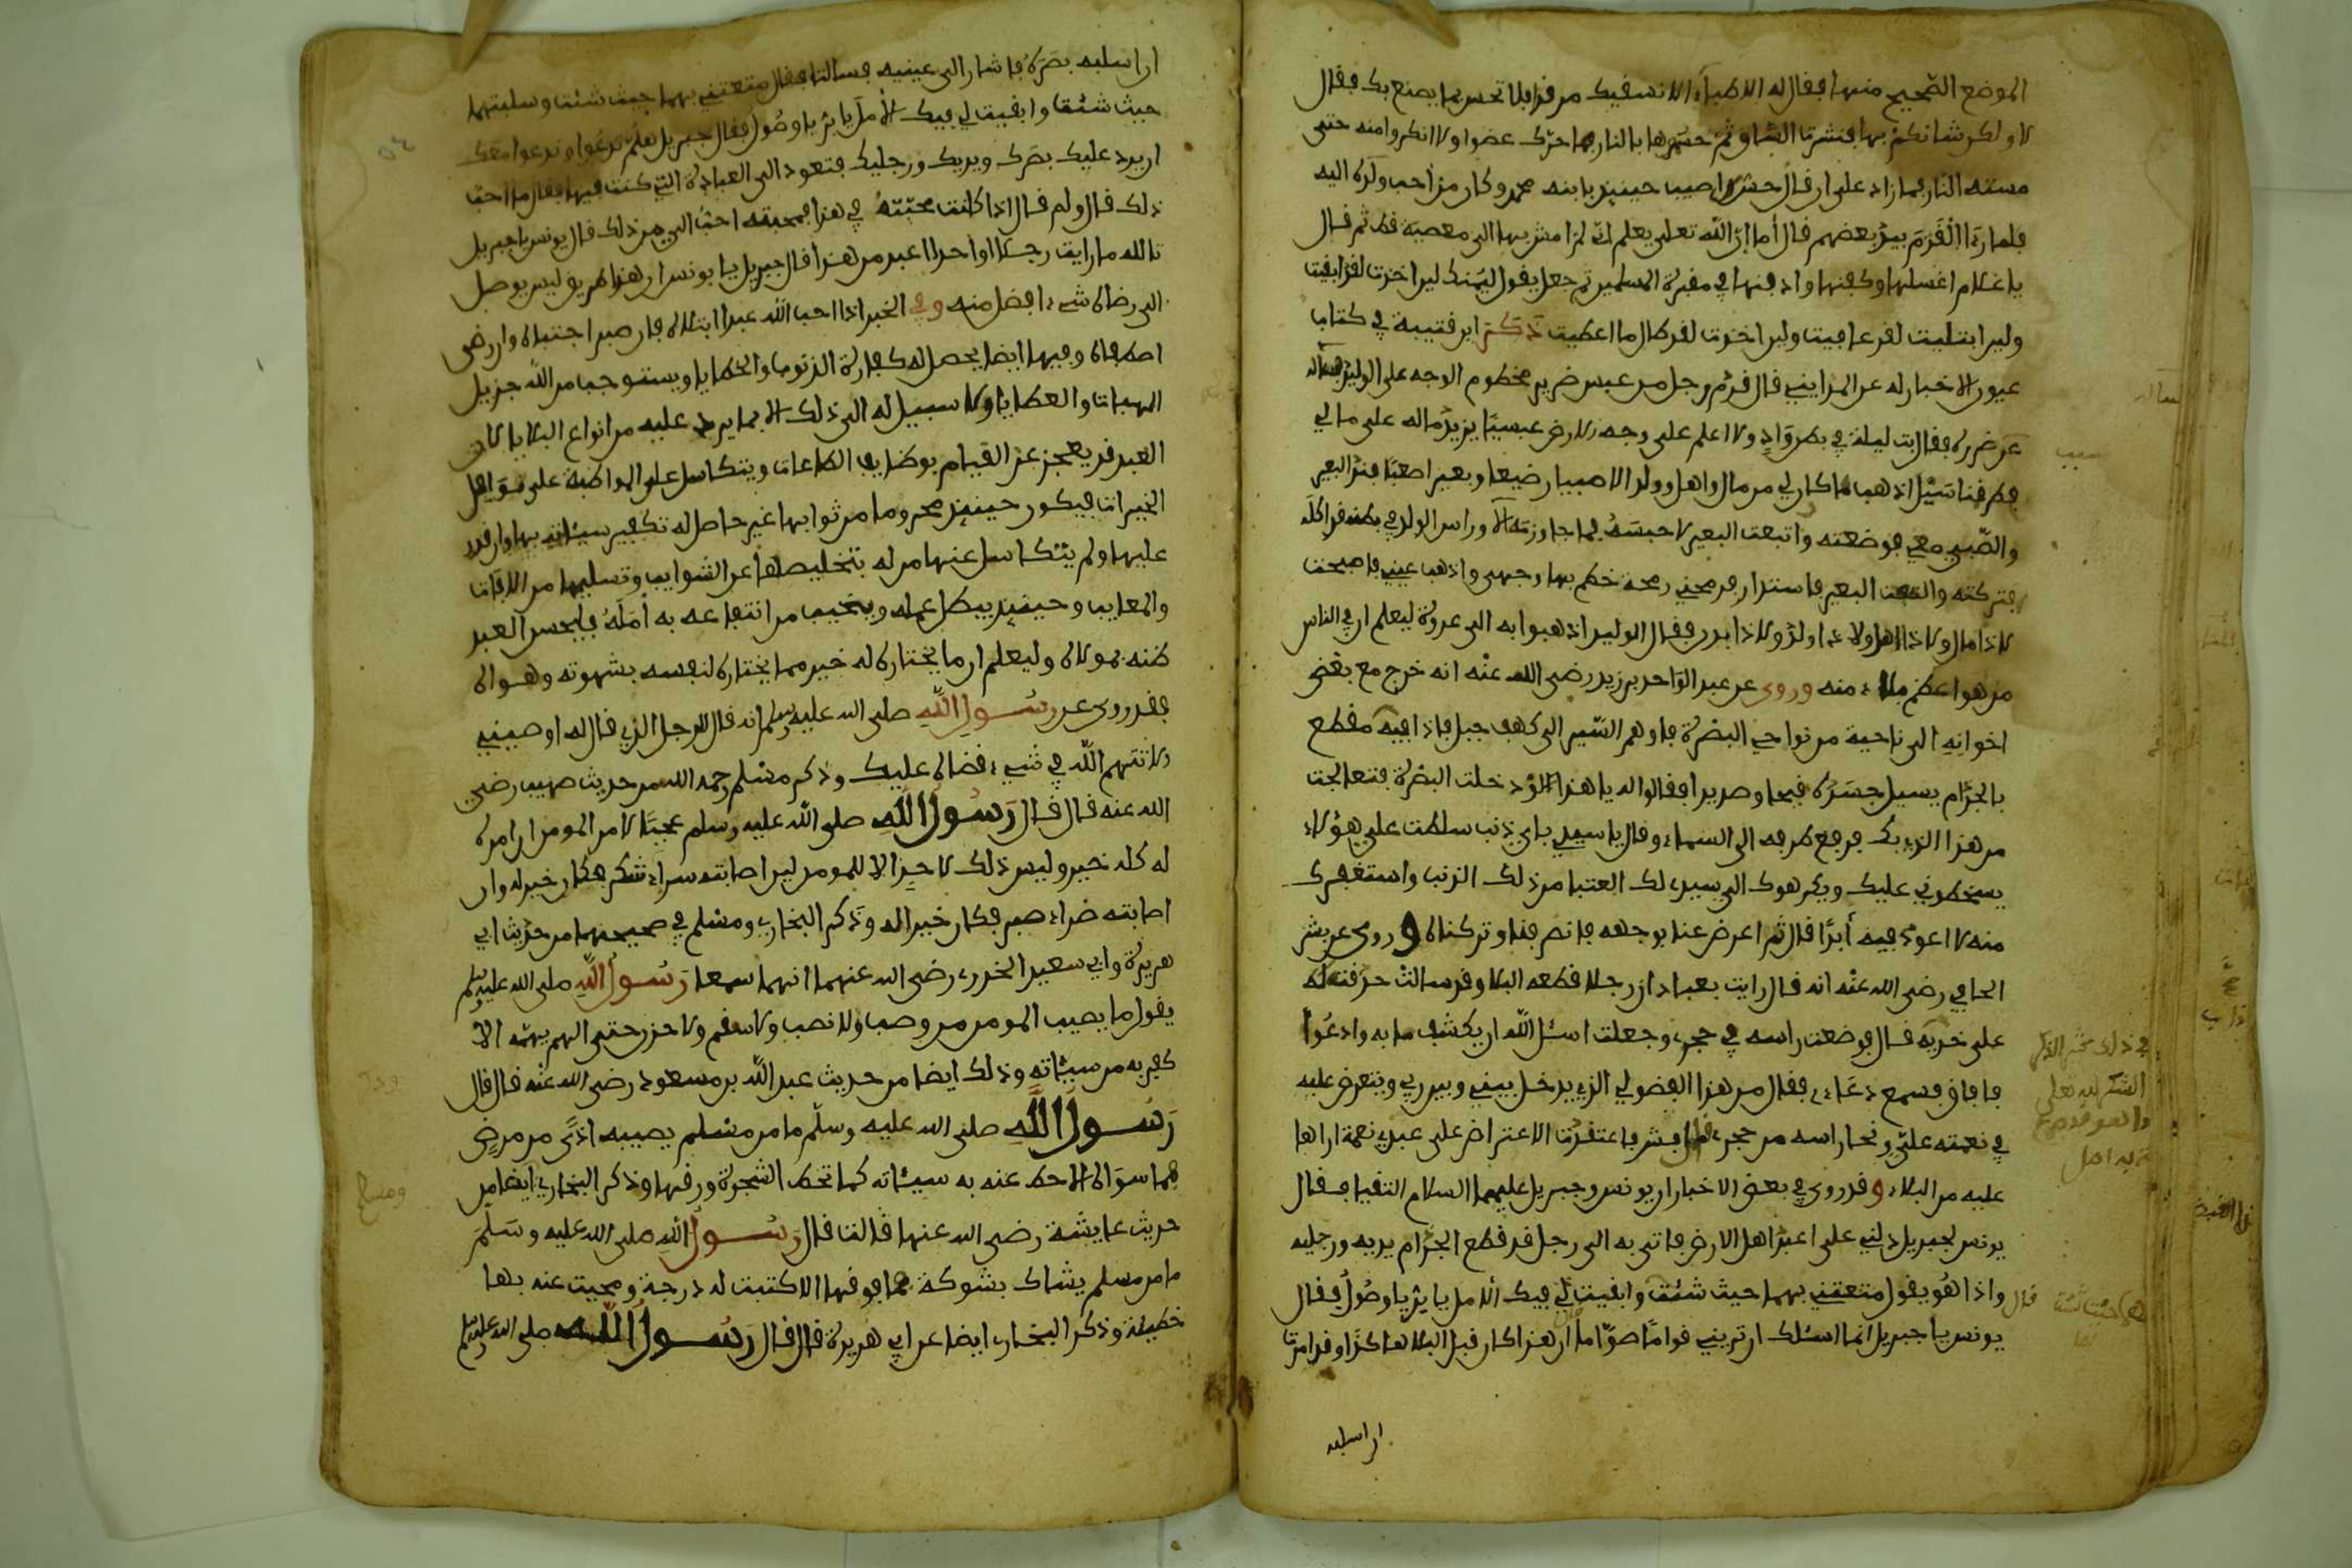 الموضع الصحيح منها فقال له الاطباء الا نسقيك مرقدا فلا تحس بما يصنع بك فقال
لا ولكن شانكم بها فنشرت الساق ثم حسموها بالنار فما حرك عضوا ولا انكروا منه حتى
مسته النار فما زاد على ان قال حس اصيب حينئذ بابنه محمد وكان من احب ولده اليه
فلما رءا القدم بيد بعضهم قال أما ان الله تعلى يعلم اني لم امش بها الى معصية قط ثم قال
يا غلام اغسلها وكفنها وادفنها في مقبرة المسلمين ثم جعل يقول ليمنك لين اخذت لقد ابقيت
ولين ابتليت لقد عافيت ولين اخذت لقد طال ما اعطيت ذكر ابن قتيبة في كتاب
عيون الاخبار له عن المدايني قال قدم رجل من عبس ضرير مخطوم الوجه على الوليد فسأله
عن ضرره فقال بت ليلة في بطن واد ولا اعلم على وجه الارض عبسيا يزيد ماله على مالي
فطرقنا سيل اذهب ما كان لي من مال واهل وولد الا صبيا رضيعا وبعيرا صعبا فند البعير
والصبي معي فوضعته واتبعت البعير لاحبسه فما جاوزته الا وراس الولد في بطنه قد اكله
فتركته واتبعت البعير فاستدار فرمحني رمحة خطم بها وجهي واذهب عيني فاصبحت
لا ذا مال ولا ذا اهل ولا ذا ولد ولا ذا بدن فقال الوليد اذهبوا به الى عروة ليعلم ان في الناس
من هو اعظم بلاء منه وروى عن عبد الواحد بن زيد رضي الله عنه انه خرج مع بعض
اخوانه الى ناحية من نواحي البصرة فاوهم السير الى كهف جبل فاذا فيه مقطع
بالجذام يسيل جسده قيحا وصديدا فقالوا له يا هذا لو دخلت البصرة فتعالجت
من هذا الذي بك فرفع طرفه الى السماء وقال يا سيدي باي ذنب سلطت علي هؤلاء
يسخطوني عليك ويكرهوك الي سيدي لك العتبا من ذلك الذنب واستغفرك
منه لا اعود فيه أبدا قال ثم اعرض عنا بوجهه فانصرفنا وتركناه وروى عن بشر
الحافي رضي الله عنه انه قال رايت بعبادان رجلا قطعه البلا وقد سالت حدقتاه
على خديه قال فوضعت راسه في حجري وجعلت اسئل الله ان يكشف ما به وادعوا
فافاق فسمع دعاءي فقال من هذا الفضولي الذي يدخل بيني وبين ربي ويتعرض عليه
في نعمته علي ونحا راسه من حجري قال بشر فاعتقدت الا اعترض على عبد في نعمة اراها
عليه من البلاء وقد روى في بعض الاخبار ان يونس وجبريل عليهما السلام التقيا فقال
يونس لجبريل دلني على اعبد اهل الارض فاتى به الى رجل قد قطع الجذام يديه ورجليه
واذا هو يقول متعتني بهما حيث شئت وابقيت لي فيك الامل يا بر يا وصول فقال
يونس يا جبريل انما اسئلك ان تريني قواما صواما ان هذا كان قبل البلا هاكذا وقد امرت
ان اسلبه
ان اسلبه بصره فاشار الى عينيه فسالتا فقال متعتني بهما حيث شئت وسلبتهما
حيث شئت وابقيت لي فيك الأمل يا بر يا وصول فقال جبريل هلم تدعوا وندعوا معك
ان يرد عليك بصرك ويديك ورجليك فتعود الى العبادة التي كنت فيها فقال ما احب
ذلك قال ولم قال اذا كانت محبته في هذا فمحبته احب الي من ذلك قال يونس يا جبريل
تالله ما رايت رجلا اواحدا اعبد من هذا قال جبريل يا يونس ان هذا طريق ليس يوصل
الى رضاه شيء افضل منه وفي الخبر اذا احب الله عبدا ابتلاه فان صبر اجتباه وان رضى
اصطفاه وفيها ايضا يحصل له كفارة الذنوب والخطايا ويستوجب من الله جزيل
الهبات والعطايا ولا سبيل له الى ذلك الا بما يرد عليه من انواع البلايا لان
العبد قد يعجز عن القيام بوظايف الطاعات ويتكاسل على المواظبة على نوافل
الخيرات فيكون حينئذ محروما من ثوابها غير حاصل له تكفير سيئاته بها وان قدر
عليها ولم يتكاسل عنها من له بتخليصها عن الشوايب وتسليمها من الافات
والمعايب وحينئذ يبطل عمله ويخيب من انتفاعه به أمله فليحسن العبد
ظنه بمولاه وليعلم ان ما يختاره له خير مما يختاره لنفسه بشهوته وهواه
فقد روى عن رسول الله صلى الله عليه وسلم انه قال للرجل الذي قال له اوصيني
لا تتهم الله في شيء قضاه عليك وذكر مسلم رحمه الله من حديث صهيب رضي
الله عنه قال قال رسول الله صلى الله عليه وسلم عجبا لامر المومن ان امره
له كله خير وليس ذلك لاحد الا للمومن لين اصابته سراء شكر فكان خير له وان
اصابته ضراء صبر فكان خيرا له وذكر البخاري ومسلم في صحيحهما من حديث ابي
هريرة وابي سعيد الخدري رضي الله عنهما انهما سمعا رسول الله صلى الله عليه وسلم
يقول ما يصيب المومن من وصب ولا نصب ولا سقم ولا حزن حتى الهم يهمه الا
كفر به من سيئاته وذلك ايضا من حديث عبد الله بن مسعود رضي الله عنه قال قال
رسول الله صلى الله عليه وسلم ما من مسلم يصيبه اذى من مرض
فما سواه الا حط عنه به سيئاته كما تحط الشجرة ورقها وذكر البخاري ايضا من
حديث عايشة رضي الله عنها قالت قال رسول الله صلى الله عليه وسلم
ما من مسلم يشاك بشوكة فما فوقها الا كتبت له درجة ومحيت عنه بها
خطيئة وذكر البخاري ايضا عن ابي هريرة قال قال رسول الله صلى الله عليه وسلم